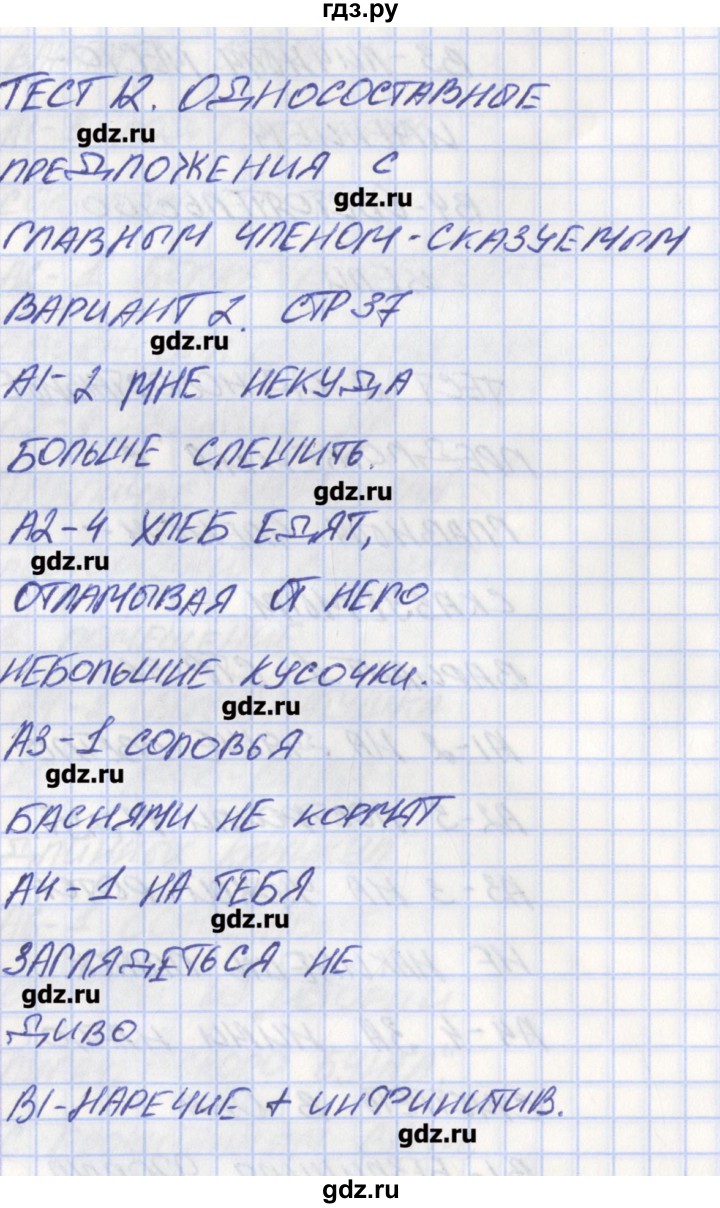 гдз.ру
ТЕСТ 12. ОДНОСОСТАВНЫЕ
gdz.ru
ПРЕДЛОЖЕНИЯ С
gdz.ru
ГЛАВНЫМ ЧЛЕНОМ-СКАЗУЕМЫМ
ВАРИАНТ 2. СТР 37
gdz.ru
А1-2 МНЕ НЕКУДА
БОЛЬШЕ СПЕШИТЬ.
gdz.ru
А2-4 ХЛЕБ ЕДЯТ,
gdz.ru
ОТЛАМЫВАЯ ОТ НЕГО
НЕБОЛЬШИЕ КУСОЧКИ.
gdz.ru
А3-1 СОЛОВЬЯ
gdz.ru
БАСНЯМИ НЕ КОРМЯТ
А4-1 НА ТЕБЯ
gdz.ru
ЗАГЛЯДЕТЬСЯ НЕ
gdz.ru
ДИВО
В1-НАРЕЧИЕ + ИНФИНИТИВ.
gdz.ru
gdz.ru